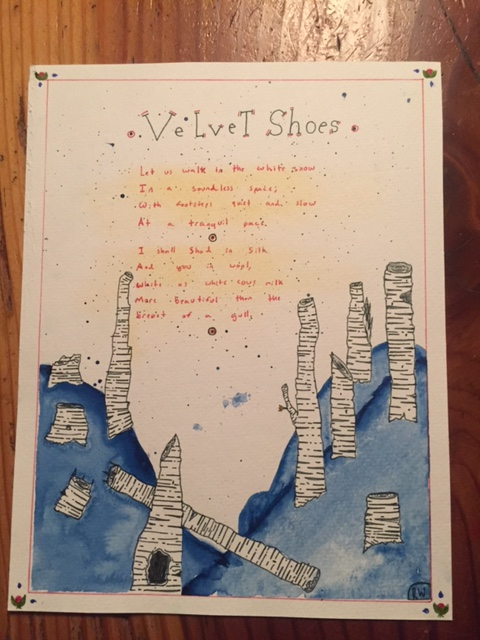 Velvet Shoes
Let us walk in the white snow
In a soundless space;
With footsteps quiet and slow
At a tranquil pace.
I shall Shod in Silk
And you in wool,
White as white cows milk
More Beautiful than the
Breast of a gull;